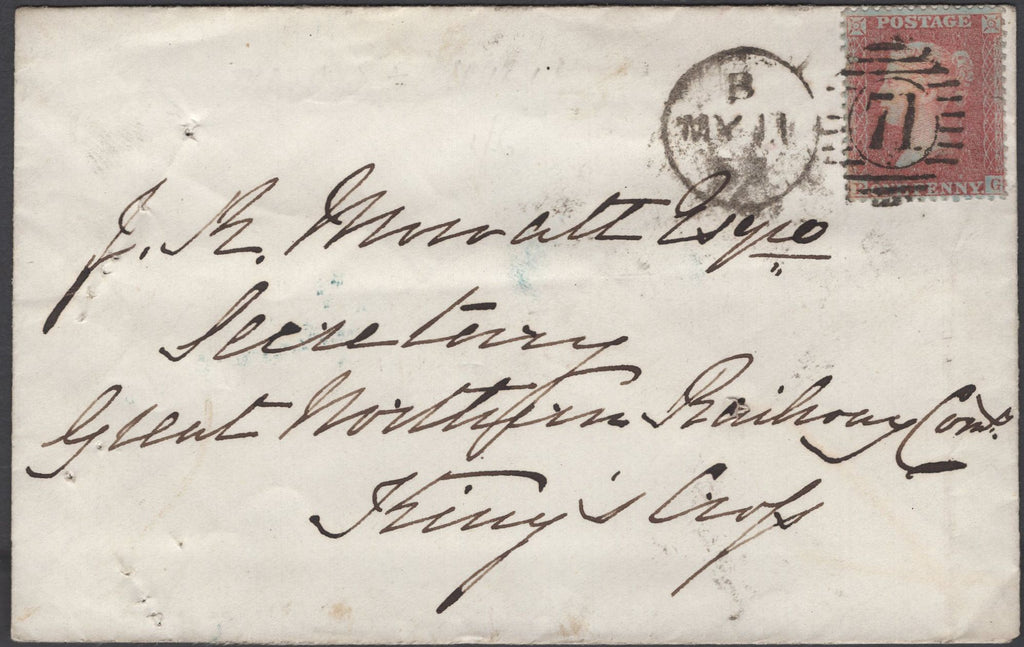 POSTAGE
G
B
MY 11
71
PENNY
G
J. R. Mowatt Esqre
Secretary
Great Northern Railway Comy.
King's Cross